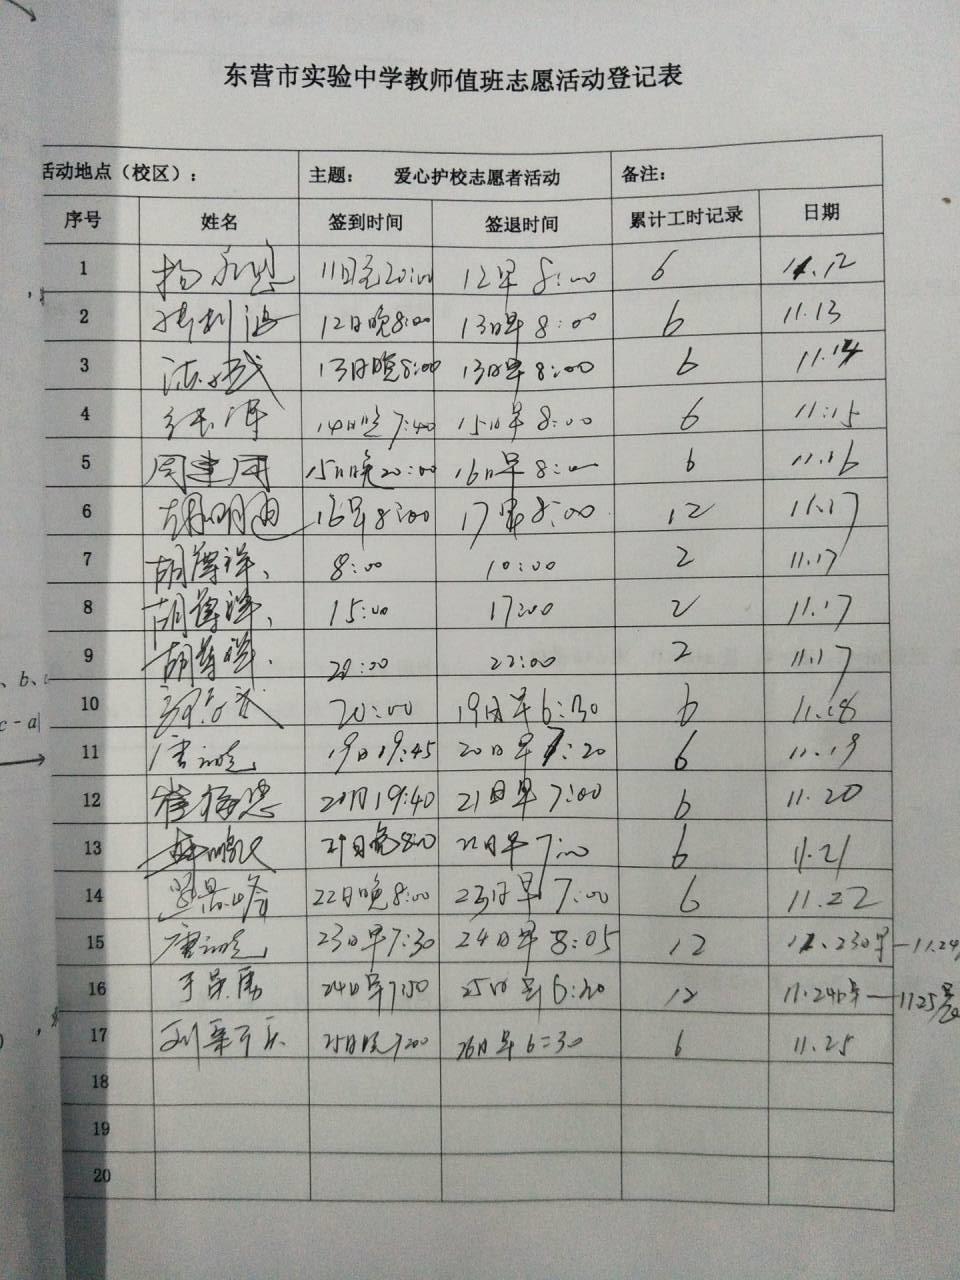 东营市实验中学教师值班志愿活动登记表
活动地点（校区）： 主题： 爱心护校志愿者活动 备注：
序号 姓名 签到时间 签退时间 累计工时记录 日期
1 11日晚20:00 12早8:00 6 11.12
2 12日晚8:00 13日早8:00 6 11.13
3 13日晚8:00 13日早8:00 6 11.14
4 14日晚7:40 15日早8:00 6 11.15
5 周建国 15日晚20:00 16日早8:00 6 11.16
6 16早8:00 17早8:00 12 11.17
7 胡尊祥、 8:00 10:00 2 11.17
8 胡尊祥、 15:00 17:00 2 11.17
9 胡尊祥、 20:00 22:00 2 11.17
10 20:00 19日早6:30 6 11.18
11 19日19:45 20日早7:20 6 11.19
12 崔梅忠 20日19:40 21日早7:00 6 11.20
13 21日晚8:00 22日早7:00 6 11.21
14 22日晚8:00 23日早7:00 6 11.22
15 23日早7:30 24日早8:05 12 11.23日早—11.24
16 24日早7:50 25日早6:20 12 11.24日早—11.25晨
17 25日晚7:00 26日早6:30 6 11.25
18
19
20
、b、
c - a|